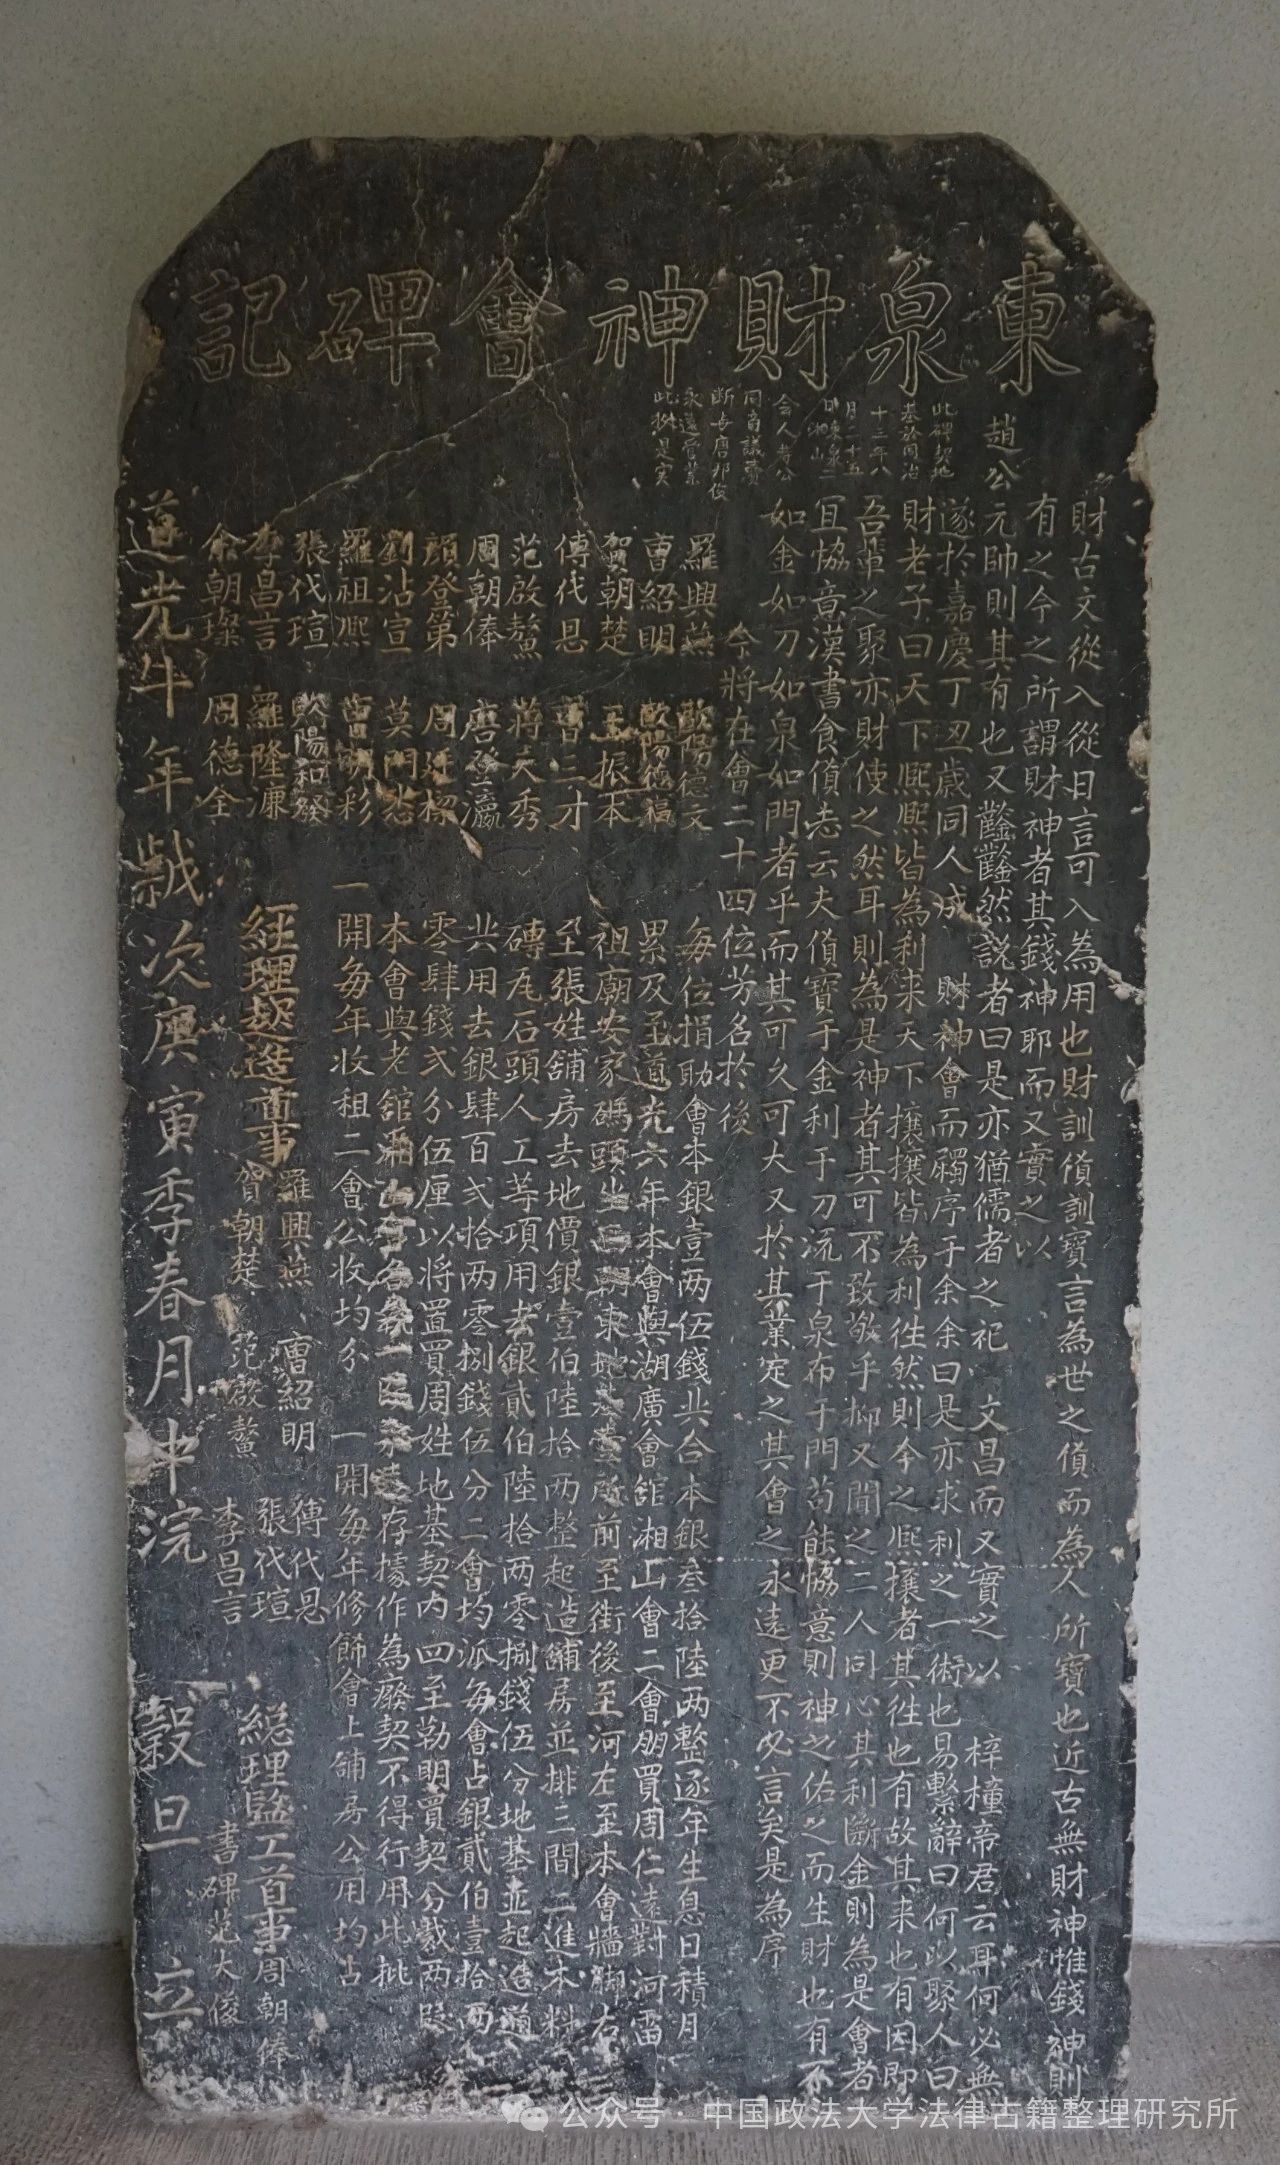 東泉財神會碑記
財古文從入從日言可入為用也財訓貨訓寶言為世之貨而為人所寶也近古無財神惟錢神則
有之今之所謂財神者其錢神耶而又實之以
趙公元帥則其有也又鑿鑿然説者曰是亦猶儒者之祀 文昌而又實之以 梓橦帝君云耳何必無
遂於嘉慶丁丑歲同人成 財神會而礪序于余余曰是亦求利之一術也易繫辭曰何以聚人曰
財老子曰天下熙熙皆為利来天下攘攘皆為利徃然則今之熙攘者其徃也有故其来也有因即
吾輩之聚亦財使之然耳則為是神者其可不致敬乎抑又聞之二人同心其利斷金則為是會者
宜協意漢書食貨志云夫貨寶于金利于刀流于泉布于門苟能協意則神之佑之而生財也有不
如金如刀如泉如門者乎而其可久可大又於其業定之其會之永遠更不必言矣是為序
今將在會二十四位芳名於後
此碑契地
基於同治
十三年八
月二十五
同商議賣
断与唐邦俊
永遠管業
此批是實
羅興燕 歐陽德文
曹紹明 歐陽德福
賀朝楚 王振本
傅代恩 曹三才
范啟鰲 蔣大秀
周朝俸 唐登瀛
顏登第 周廷樑
劉沾宣 莫門志
羅祖熙 曹明彩
張代瑄 歐陽和發
李昌言 羅隆濂
余朝璨 周德全
每位捐助會本銀壹两伍錢共合本銀叁拾陸两整逐年生息日積月
累及至道光六年本會與湖廣會館湘山會二會朋買周仁遠對河雷
祖廟安家碼頭坐東朝地基壹所前至街後至河左至本會牆脚右
至張姓舖房去地價銀壹伯陸拾两整起造舖房並排三間二進木料
磚瓦石頭人工等項用去銀貳伯陸拾两零捌錢伍分地基並起造道
共用去銀肆百弍拾两零捌錢伍分二會均派每會占銀貳伯壹拾两
零肆錢弍分伍厘以將置買周姓地基契内四至勒明賣契分裁两段
本會與老館湘山會各執一張永遠存據作為廢契不得行用此批
一開每年收租二會公收均分 一開每年修餙會上舖房公用均占
經理契造首事 羅興燕 賀朝楚 曹紹明 范啟鰲 傅代恩 張代瑄 李昌言
總理監工首事周朝俸
書碑范大俊
道光十年歲次庚寅季春月中浣 穀旦 立
公众号·中国政法大学法律古籍整理研究所